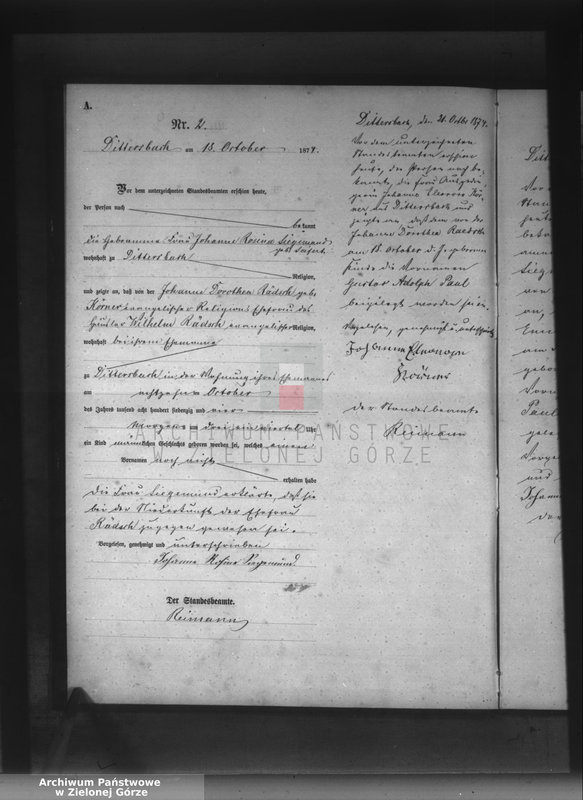 A.
Nr. 2.
Dittersbach am 18. October 1874.
Vor dem unterzeichneten Standesbeamten erschien heute,
der Person nach
bekannt
die Hebamme Frau Johanne Rosina Siegemund
geb.
wohnhaft zu Dittersbach
Religion,
und zeigte an, daß von der Johanne Dorothea Rädsch geb.
Körner evangelischer Religion Ehefrau des
Häusler Wilhelm Rädsch evangelischer Religion,
wohnhaft bei ihrem Ehemanne
zu Dittersbach in der Wohnung ihres Ehemannes
am achtzehn October
des Jahres tausend acht hundert siebenzig und vier
Morgens drei ein viertel Uhr
ein Kind männlichen Geschlechts geboren worden sei, welches einen
Vornamen noch nicht
erhalten habe
Die Frau Siegemund erklärte, daß sie
bei der Niederkunft der Ehefrau
Rädsch zugegen gewesen sei.
Vorgelesen, genehmigt und unterschrieben
Johanne Rosine Siegemund.
Der Standesbeamte.
Reimann
Dittersbach, den 21. Octbr 1874.
Vor dem unterzeichneten
Standesbeamten erschien
heute, der Person nach be-
kannt, die Frau
Johanne Eleonore Kör-
ner aus Dittersbach und
zeigte an, daß dem von der
Johanne Dorothea Raedsch
am 18. October d. J. geborenen
Kinde die Vornamen
Gustav Adolph Paul
beigelegt worden seien.
Vorgelesen, genehmigt u. unterschrieben
Johanne Eleonore
Körner
der Standesbeamte
Reimann
ARCHIWUM PAŃSTWOWE
W ZIELONEJ GÓRZE
Archiwum Państwowe
w Zielonej Górze